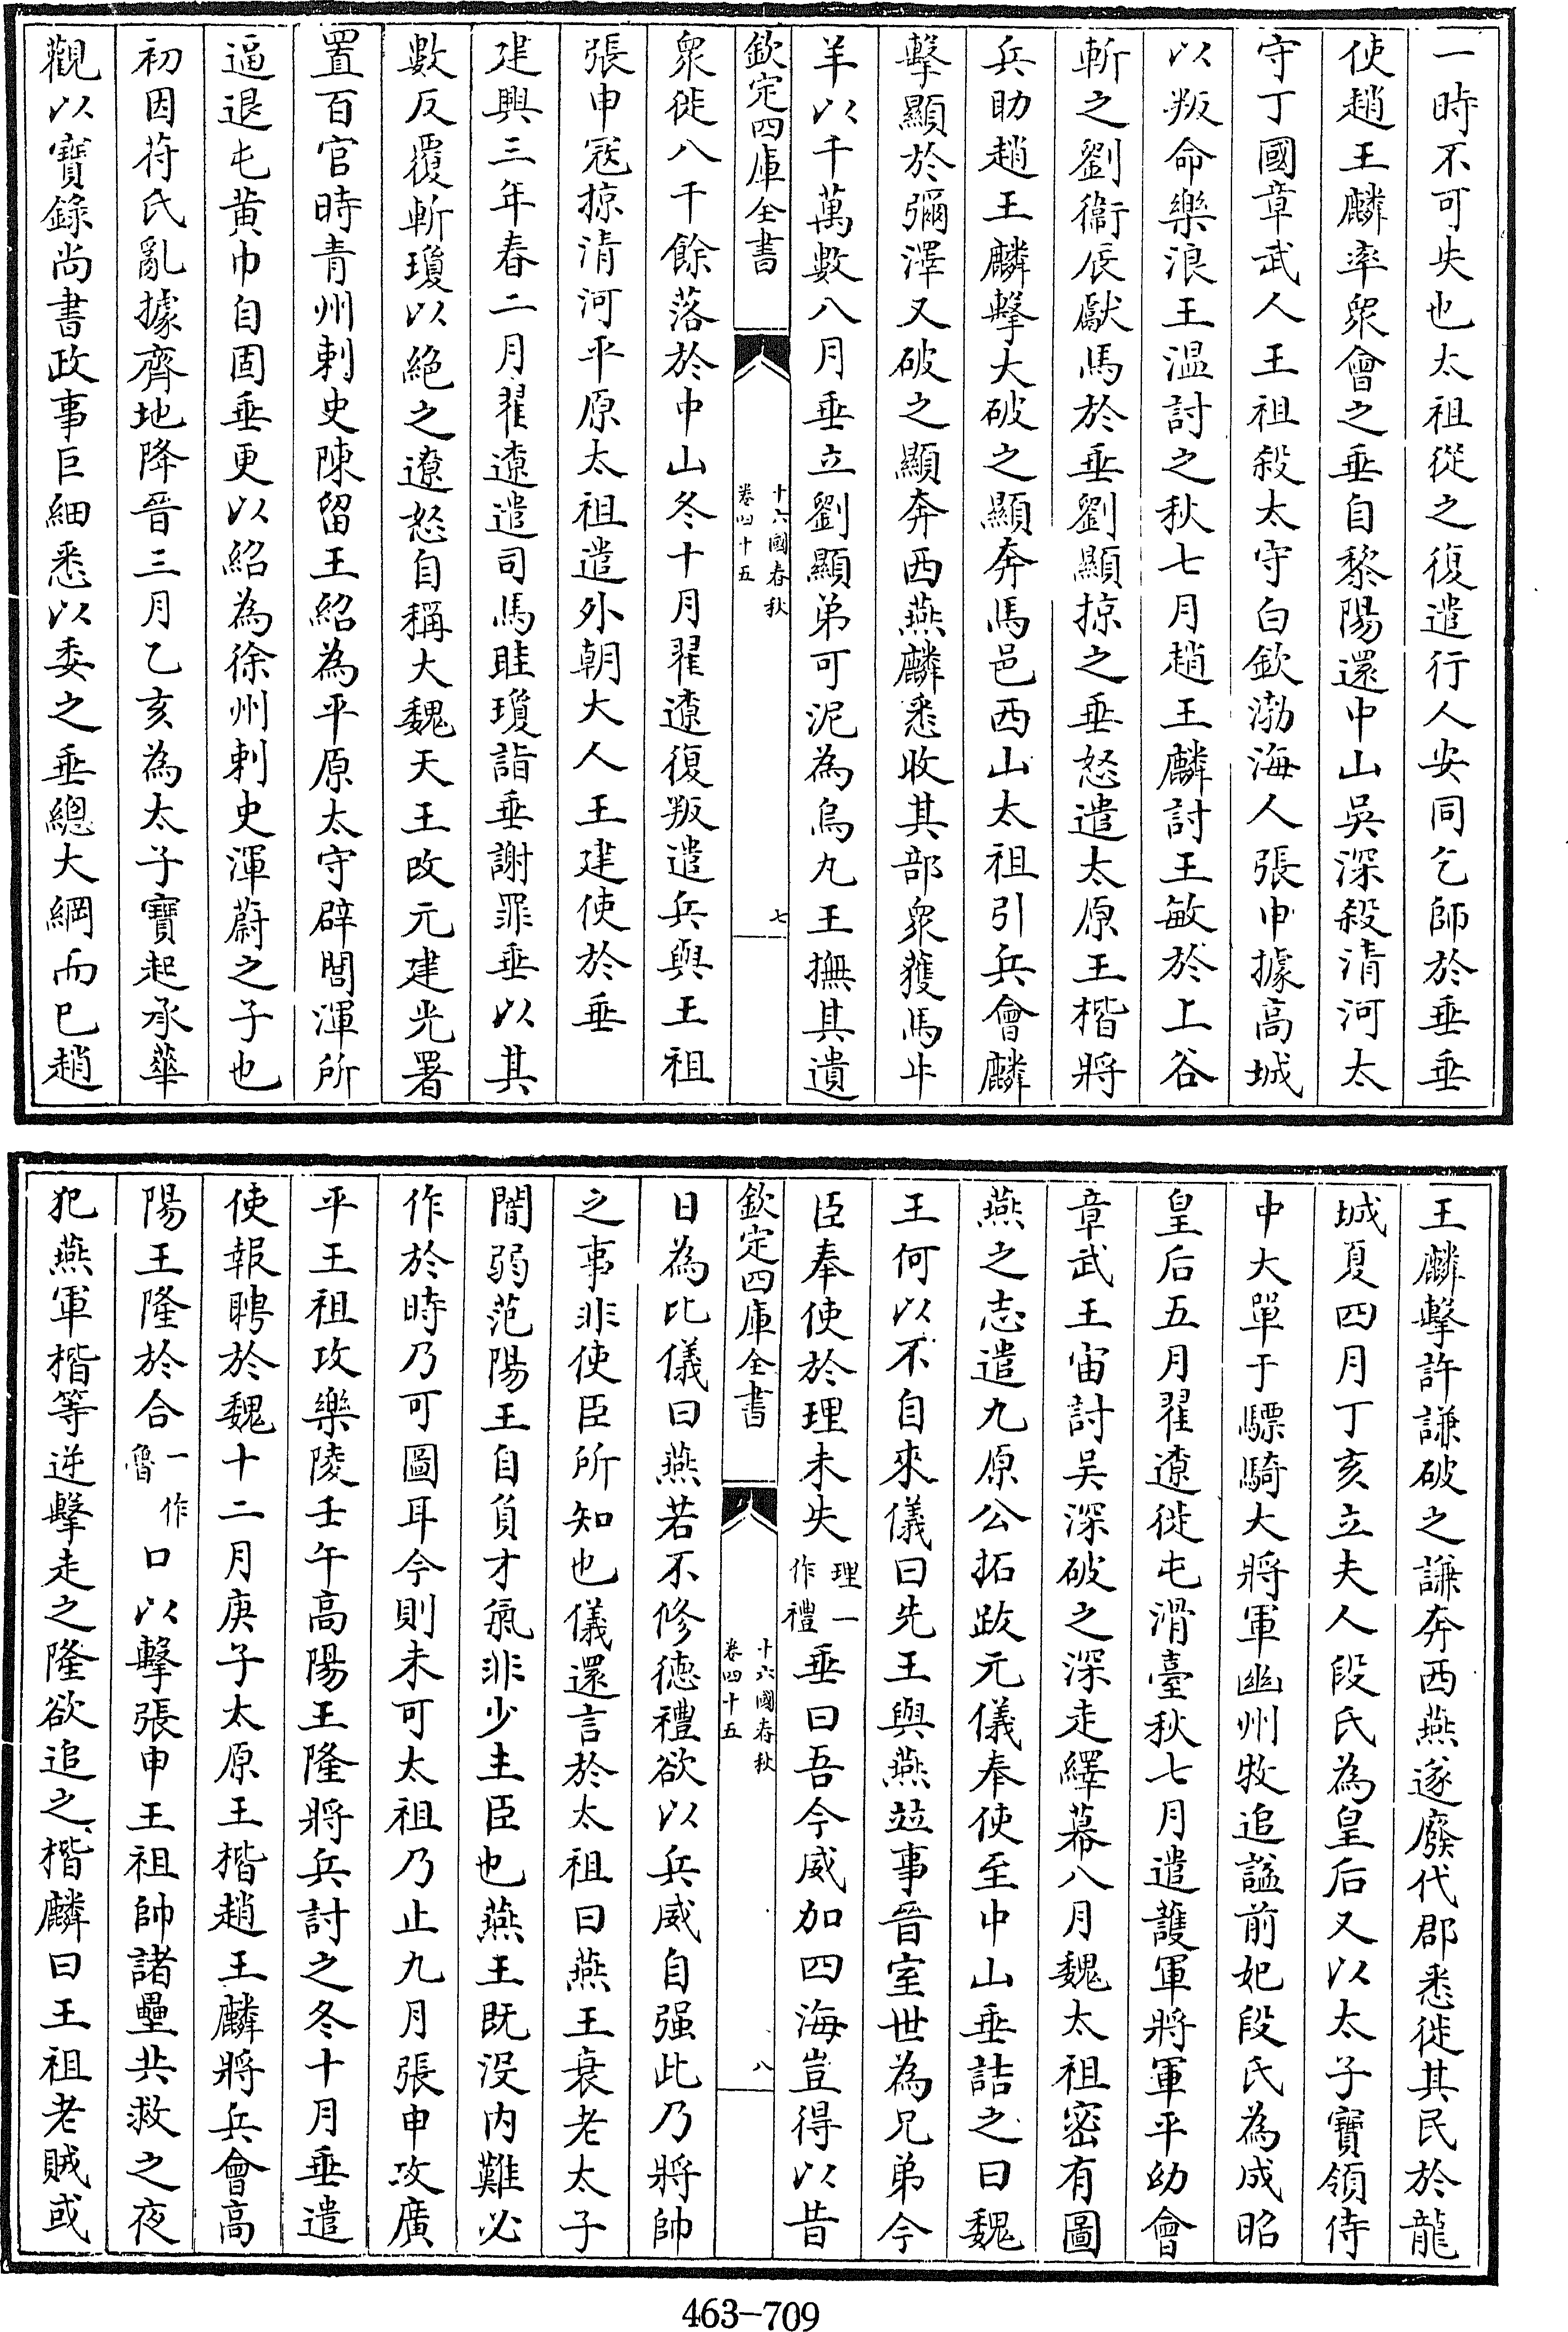 一時不可失也太祖從之復遣行人安同乞師於垂垂
使趙王麟率衆會之垂自黎陽還中山吳深殺清河太
守丁國章武人王祖殺太守白欽渤海人張申據高城
以叛命樂浪王溫討之秋七月趙王麟討王敏於上谷
斬之劉衞辰獻馬於垂劉顯掠之垂怒遣太原王楷將
兵助趙王麟擊大破之顯奔馬邑西山太祖引兵會麟
擊顯於彌澤又破之顯奔西燕麟悉收其部衆獲馬牛
羊以千萬數八月垂立劉顯弟可泥為烏九王撫其遺
欽定四庫全書
十六國春秋
卷四十五
七
衆徙八千餘落於中山冬十月翟遼復叛遣兵與王祖
張申寇掠清河平原太祖遣外朝大人王建使於垂
建興三年春二月翟遼遣司馬眭瓊詣垂謝罪垂以其
數反覆斬瓊以絶之遼怒自稱大魏天王改元建光署
置百官時青州刺史陳留王紹為平原太守辟閭渾所
逼退屯黄巾自固垂更以紹為徐州刺史渾蔚之子也
初因苻氏亂據齊地降晉三月乙亥為太子寶起承華
觀以寶錄尚書政事巨細悉以委之垂總大綱而已趙
王麟擊許謙破之謙奔西燕遂廢代郡悉徙其民於龍
城夏四月丁亥立夫人段氏為皇后又以太子寶領侍
中大單于驃騎大將軍幽州牧追謚前妃段氏為成昭
皇后五月翟遼徙屯滑臺秋七月遣護軍將軍平幼會
章武王宙討吳深破之深走繹幕八月魏太祖密有圖
燕之志遣九原公拓跋元儀奉使至中山垂詰之曰魏
王何以不自來儀曰先王與燕竝事晉室世為兄弟今
臣奉使於理未失理一作禮垂曰吾今威加四海豈得以昔
欽定四庫全書
十六國春秋
卷四十五
八
日為比儀曰燕若不修徳禮欲以兵威自强此乃將帥
之事非使臣所知也儀還言於太祖曰燕王衰老太子
闇弱范陽王自負才氣非少主臣也燕王既没内難必
作於時乃可圖耳今則未可太祖乃止九月張申攻廣
平王祖攻樂陵壬午高陽王隆將兵討之冬十月垂遣
使報聘於魏十二月庚子太原王楷趙王麟將兵會高
陽王隆於合一作魯口以擊張申王祖帥諸壘共救之夜
犯燕軍楷等逆擊走之隆欲追之楷麟曰王祖老賊或
463-709